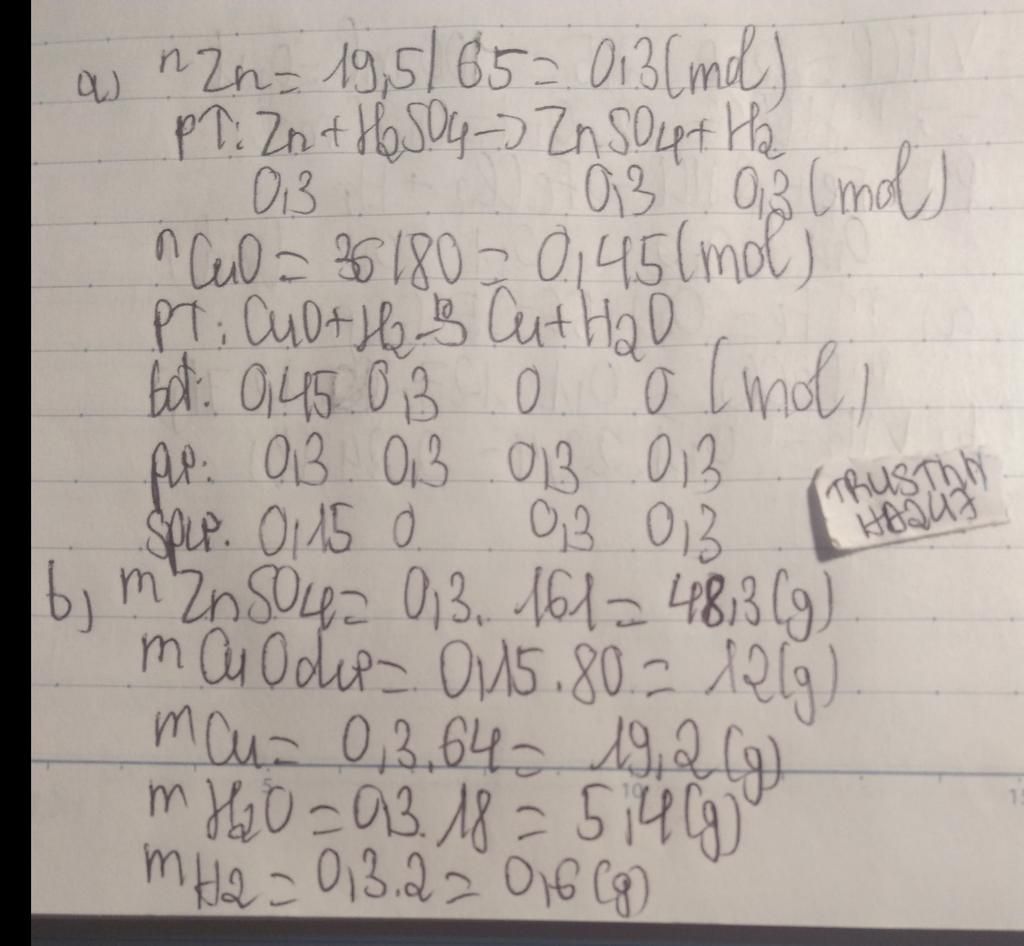 a) nZn = 19,5/65 = 0,3(mol)
PT: Zn + H2SO4 -> ZnSO4 + H2
0,3 0,3 0,3 (mol)
nCuO = 36/80 = 0,45(mol)
PT: CuO + H2 -> Cu + H2O
bđ: 0,45 0,3 0 0 (mol)
pư: 0,3 0,3 0,3 0,3
spư. 0,15 0 0,3 0,3
TRUSTNN
HB247
b) mZnSO4 = 0,3. 161 = 48,3(g)
mCuOdư = 0,15.80 = 12(g)
mCu = 0,3.64 = 19,2(g)
mH2O = 0,3. 18 = 5,4(g)
mH2 = 0,3.2 = 0,6(g)